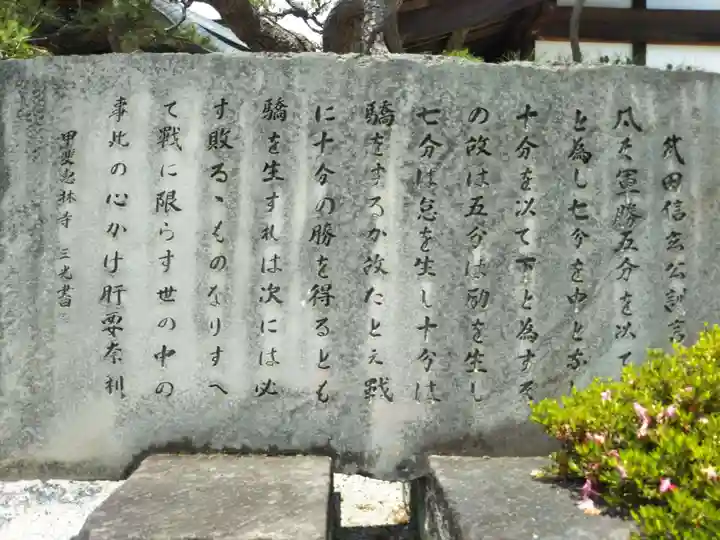 武田信玄公訓言
凡そ軍勝五分を以て上
と為し七分を中と為し
十分を以て下と為すそ
の故は五分は励を生し
七分は怠を生し十分は
驕をするか故たとえ戦
に十分の勝を得るとも
驕を生すれは次には必
す敗るゝものなりすへ
て戦に限らす世の中の
事此の心かけ肝要奈利
甲斐恵林寺 三光書